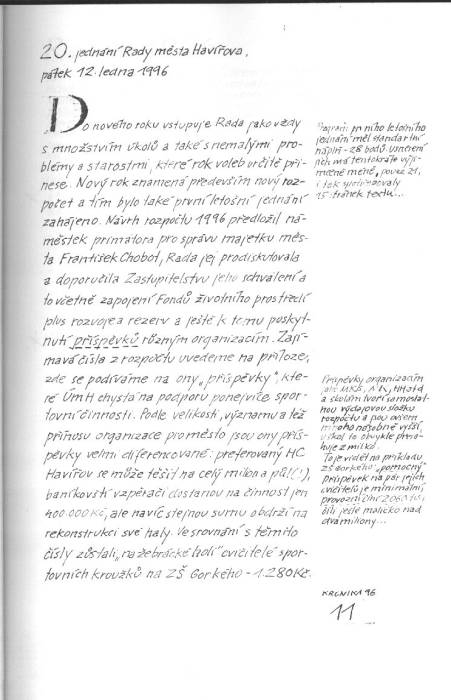 20. jednání Rady města Havířova,
pátek 12. ledna 1996
Do nového roku vstupuje Rada jako vždy
s množstvím úkolů a také s nemalými pro-
blémy a starostmi, které rok voleb určitě při-
nese. Nový rok znamená především nový roz-
počet a tím bylo také první letošní jednání
zahájeno. Návrh rozpočtu 1996 předložil ná-
městek primátora pro správu majetku měs-
ta František Chobot, Rada jej prodiskutovala
a doporučila Zastupitelstvu jeho schválení a
to včetně zapojení Fondů životního prostředí
plus rozvoje a rezerv a ještě k tomu poskyt-
nutí příspěvků různým organizacím. Zají-
mavá čísla z rozpočtu uvedeme na příloze,
zde se podíváme na ony „příspěvky", kte-
ré ÚmH chystá na podporu ponejvíce spor-
tovní činnosti. Podle velikosti, významu a též
přínosu organizace pro město jsou ony přís-
pěvky velmi diferencované: preferovaný HC
Havířov se může těšit na celý milion a půl(!),
baníkovští vzpěrači dostanou na činnost jen
400.000 Kč, ale navíc stejnou sumu obdrží na
rekonstrukci své haly. Ve srovnání s těmito
čísly zůstali „na žebrácké holi" cvičitelé spor-
tovních kroužků na ZŠ Gorkého - 1.280Kč.
Program prvního letošního
jednání měl standartní
náplň - 28 bodů. Usnesení
jich má tentokráte výji-
mečně méně, pouze 21,
i tak
15. stránek textu...
Příspěvky organizacím
jako MKS,
a školám tvoří samostat-
nou výdajovou složku
rozpočtu a jsou ovšem
mnohonásobně vyšší,
však to obvykle
To je vidět na příkladu
ZŠ Gorkého: „pomocný"
příspěvek na pár jejich
cvičitelů je minimální,
provozní
čili ještě maličko nad
dva miliony...
KRONIKA 96
11